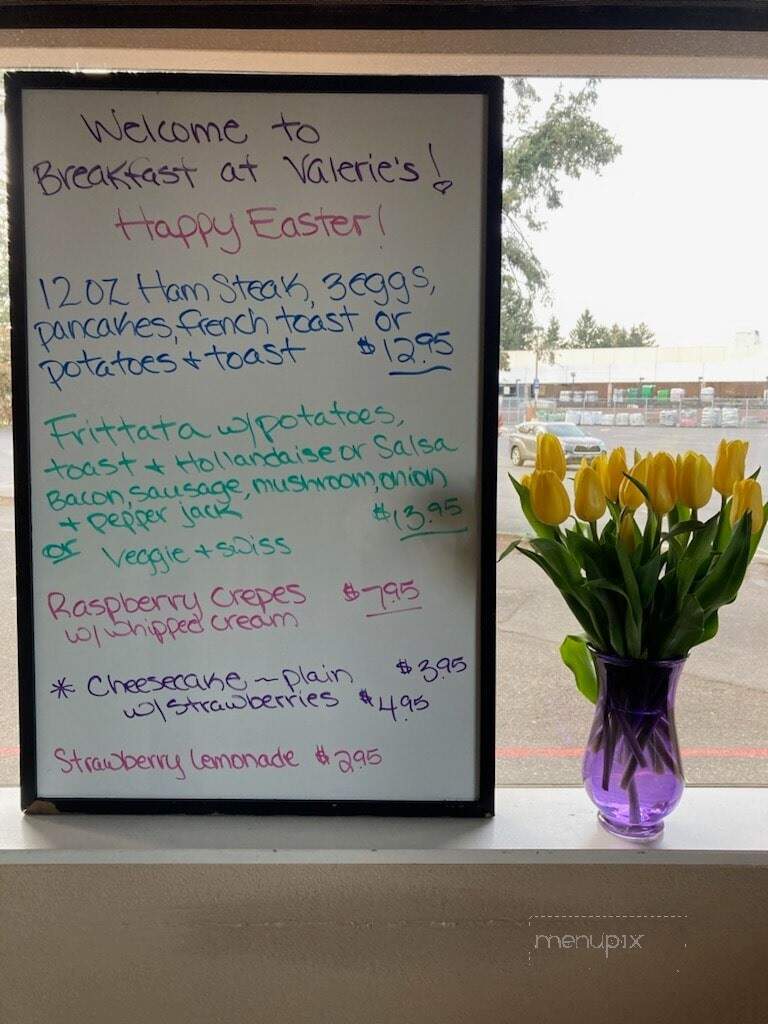 Welcome to
Breakfast at Valerie's!
Happy Easter!
12oz Ham Steak, 3 eggs,
pancakes, french toast or
potatoes + toast $12.95
Frittata w/potatoes,
toast + Hollandaise or Salsa
Bacon, sausage, mushroom, onion
+ pepper jack $13.95
or Veggie + swiss
Raspberry Crepes $7.95
w/whipped cream
* Cheesecake ~ plain $3.95
w/strawberries $4.95
Strawberry Lemonade $2.95
menupix